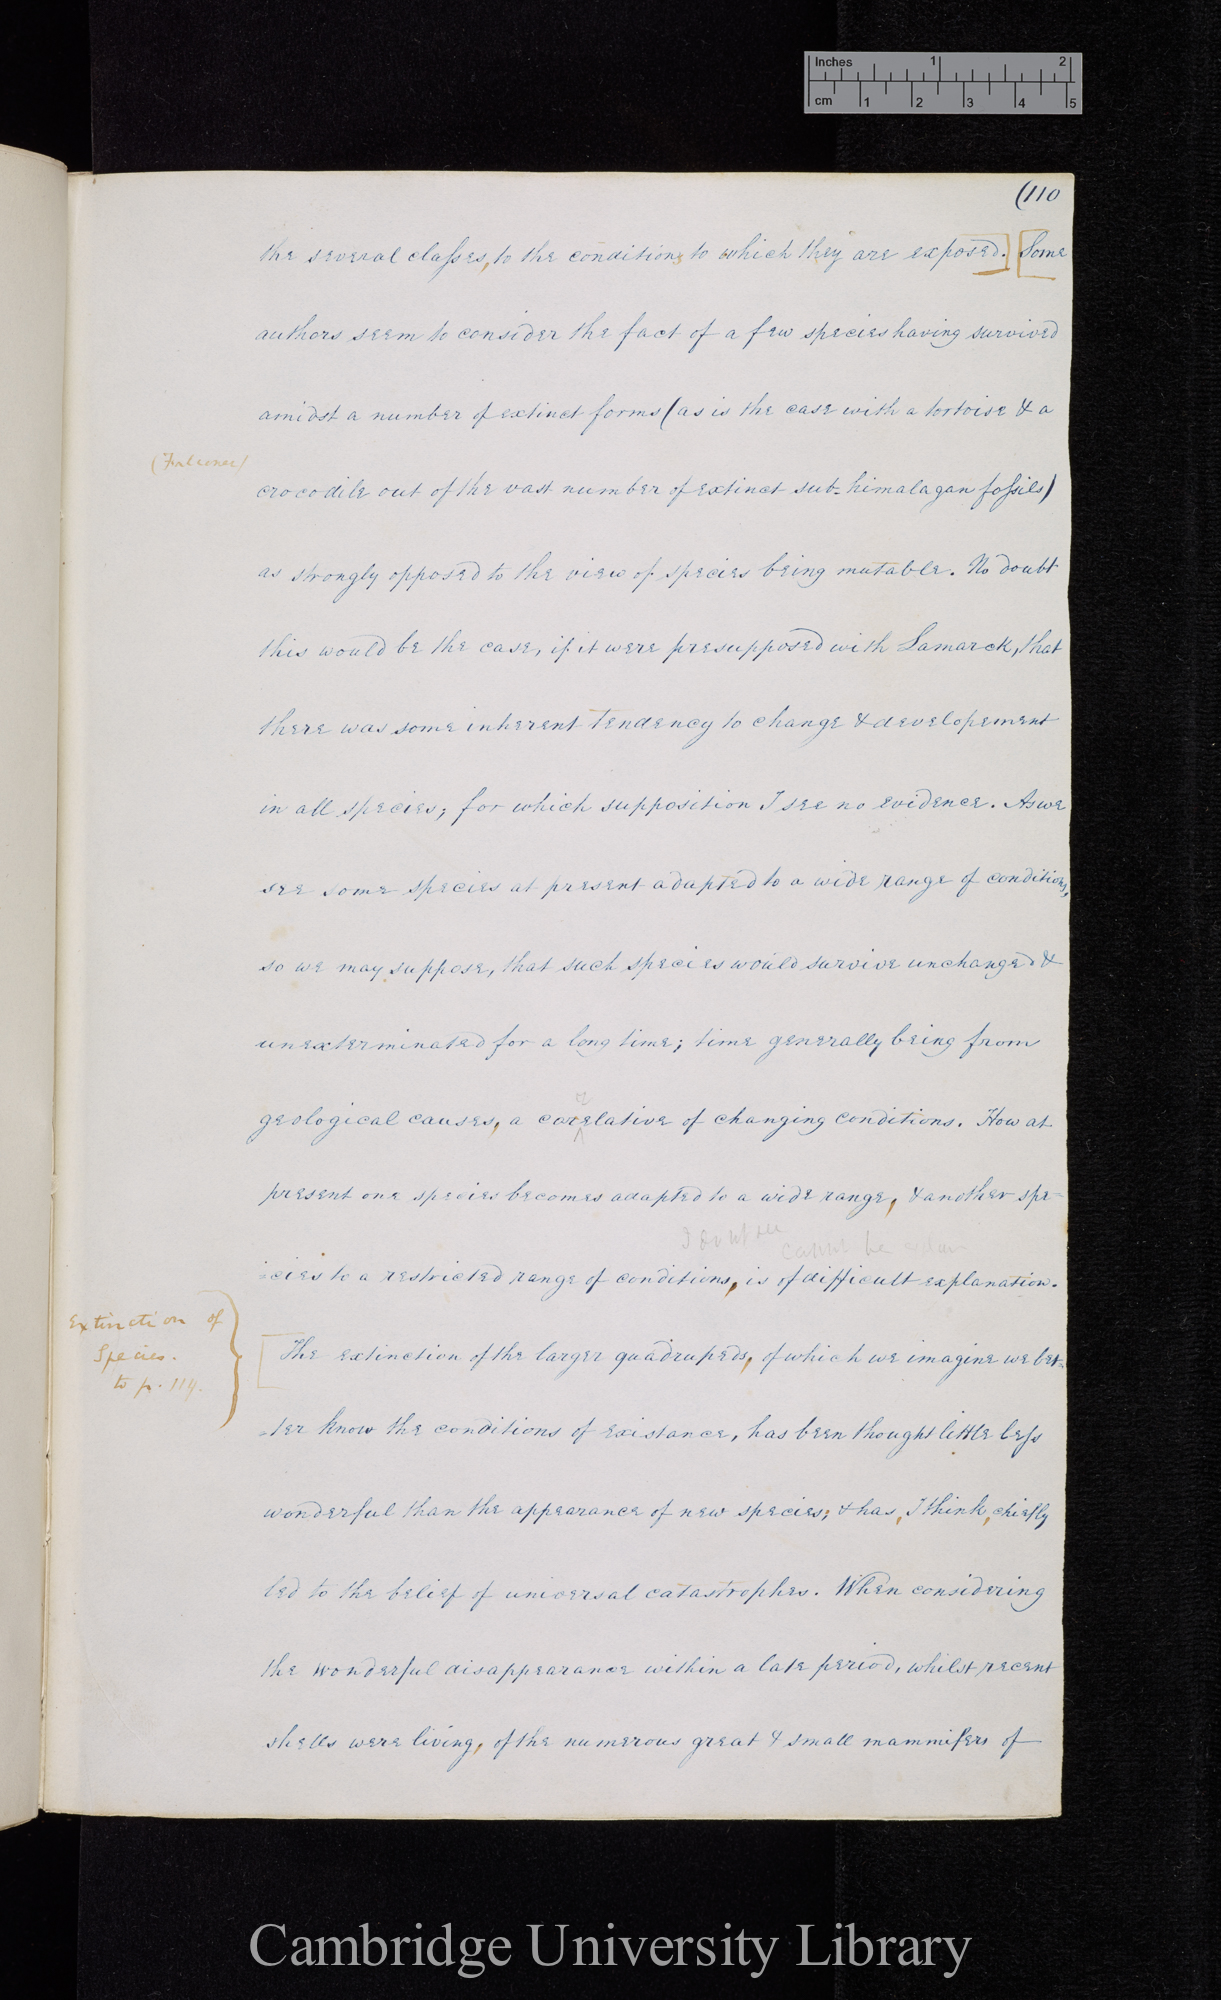 Inches 1 2
cm 1 2 3 4 5
(110
the several classes, to the conditions to which they are exposed.] [Some
authors seem to consider the fact of a few species having survived
amidst a number of extinct forms (as is the case with a tortoise & a
(Falconer)
crocodile out of the vast number of extinct sub-himalayan fossils)
as strongly opposed to the view of species being mutable. No doubt
this would be the case, if it were presupposed with Lamarck, that
there was some inherent tendency to change & developement
in all species; for which supposition I see no evidence. As we
see some species at present adapted to a wide range of conditions,
so we may suppose, that such species would survive unchanged &
unexterminated for a long time; time generally being from
geological causes, a corelative of changing conditions. How at
present one species becomes adapted to a wide range, & another spe-
I do not see
cannot be
-cies to a restricted range of conditions, is of difficult explanation.
Extinction of
Species.
to p. 114.
[The extinction of the larger quadrupeds, of which we imagine we bet-
-ter know the conditions of existance, has been thought little less
wonderful than the appearance of new species; & has, I think, chiefly
led to the belief of universal catastrophes. When considering
the wonderful disappearance within a late period, whilst recent
shells were living, of the numerous great & small mammifers of
Cambridge University Library